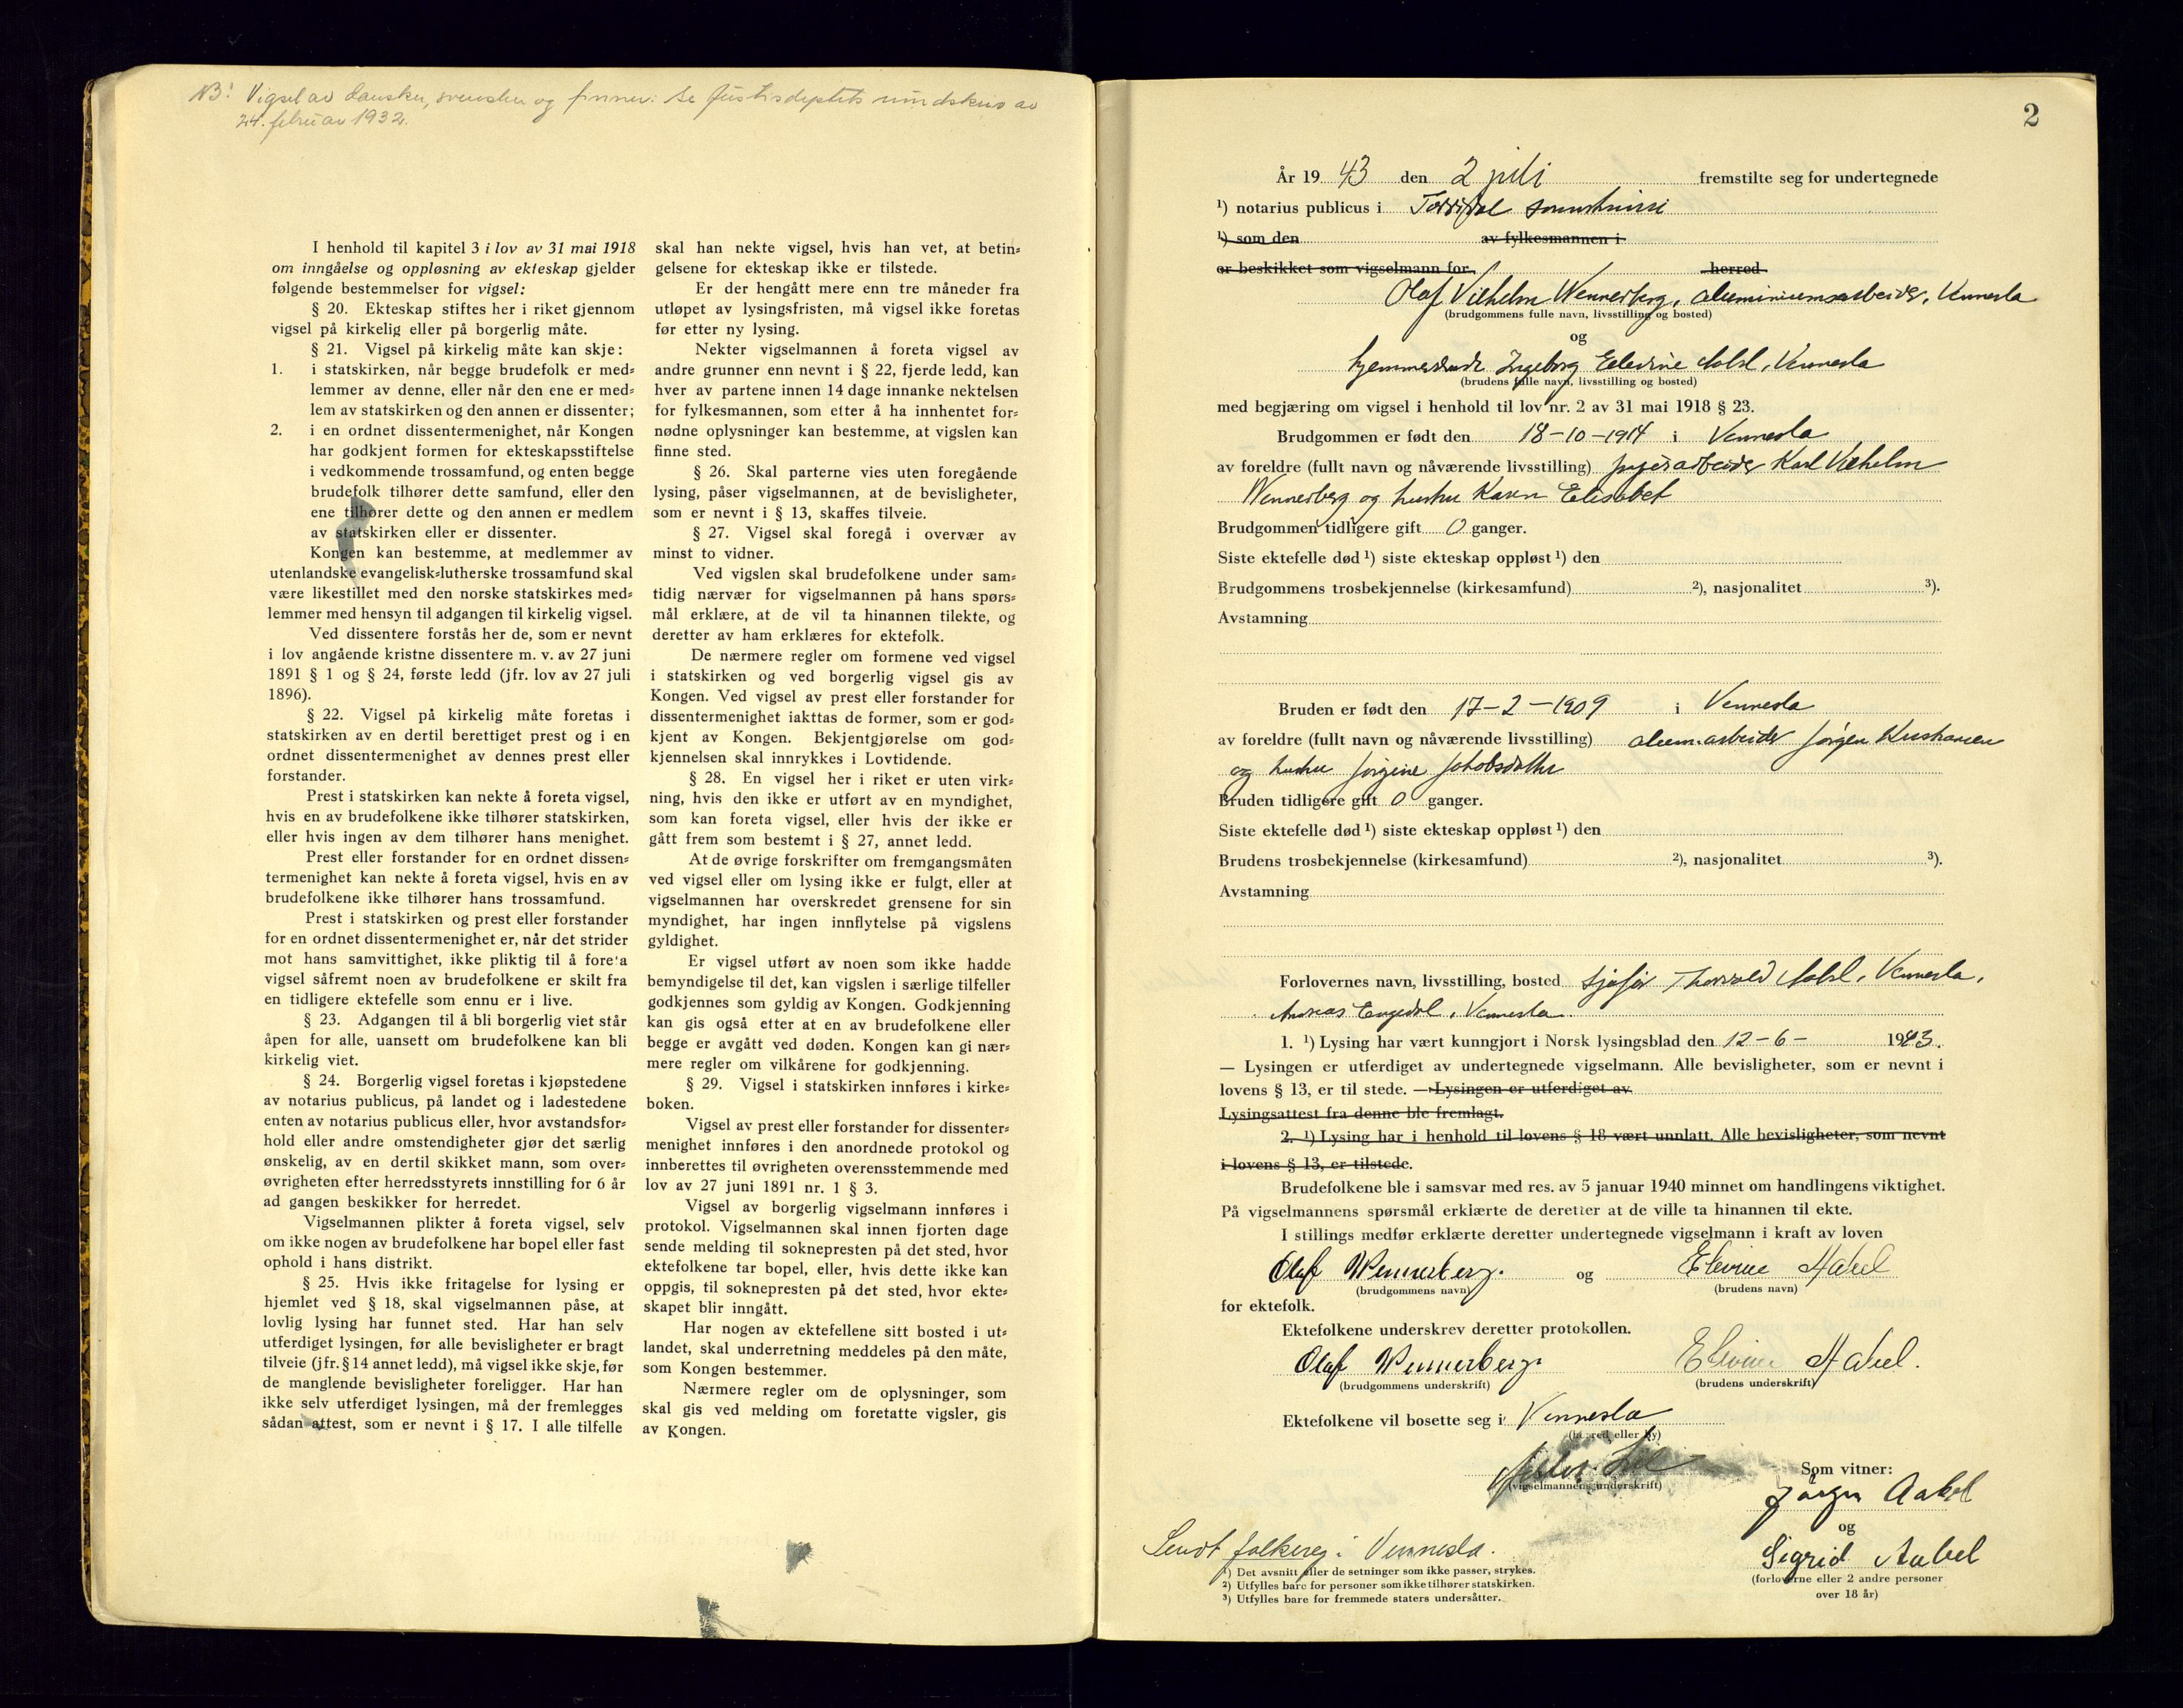 NB! Vigsel av dansker, svensker og finner: Se Justisdeptets rundskriv av
24. februar 1932.
I henhold til kapitel 3 i lov av 31 mai 1918
om inngåelse og oppløsning av ekteskap gjelder
følgende bestemmelser for vigsel:
§ 20. Ekteskap stiftes her i riket gjennom
vigsel på kirkelig eller på borgerlig måte.
§ 21. Vigsel på kirkelig måte kan skje:
1. i statskirken, når begge brudefolk er med=
lemmer av denne, eller når den ene er med=
lem av statskirken og den annen er dissenter;
2. i en ordnet dissentermenighet, når Kongen
har godkjent formen for ekteskapsstiftelse
i vedkommende trossamfund, og enten begge
brudefolk tilhører dette samfund, eller den
ene tilhører dette og den annen er medlem
av statskirken eller er dissenter.
Kongen kan bestemme, at medlemmer av
utenlandske evangelisk=lutherske trossamfund skal
være likestillet med den norske statskirkes med=
lemmer med hensyn til adgangen til kirkelig vigsel.
Ved dissentere forstås her de, som er nevnt
i lov angående kristne dissentere m. v. av 27 juni
1891 § 1 og § 24, første ledd (jfr. lov av 27 juli
1896).
§ 22. Vigsel på kirkelig måte foretas i
statskirken av en dertil berettiget prest og i en
ordnet dissentermenighet av dennes prest eller
forstander.
Prest i statskirken kan nekte å foreta vigsel,
hvis en av brudefolkene ikke tilhører statskirken,
eller hvis ingen av dem tilhører hans menighet.
Prest eller forstander for en ordnet dissen=
termenighet kan nekte å foreta vigsel, hvis en av
brudefolkene ikke tilhører hans trossamfund.
Prest i statskirken og prest eller forstander
for en ordnet dissentermenighet er, når det strider
mot hans samvittighet, ikke pliktig til å foreta
vigsel såfremt noen av brudefolkene er skilt fra
en tidligere ektefelle som ennu er i live.
§ 23. Adgangen til å bli borgerlig viet står
åpen for alle, uansett om brudefolkene kan bli
kirkelig viet.
§ 24. Borgerlig vigsel foretas i kjøpstedene
av notarius publicus, på landet og i ladestedene
enten av notarius publicus eller, hvor avstandsfor=
hold eller andre omstendigheter gjør det særlig
ønskelig, av en dertil skikket mann, som over=
øvrigheten efter herredsstyrets innstilling for 6 år
ad gangen beskikker for herredet.
Vigselmannen plikter å foreta vigsel, selv
om ikke nogen av brudefolkene har bopel eller fast
ophold i hans distrikt.
§ 25. Hvis ikke fritagelse for lysing er
hjemlet ved § 18, skal vigselmannen påse, at
lovlig lysing har funnet sted. Har han selv
utferdiget lysingen, før alle bevisligheter er bragt
tilveie (jfr. § 14 annet ledd), må vigsel ikke skje, før
de manglende bevisligheter foreligger. Har han
ikke selv utferdiget lysingen, må der fremlegges
sådan attest, som er nevnt i § 17. I alle tilfelle
skal han nekte vigsel, hvis han vet, at betin=
gelsene for ekteskap ikke er tilstede.
Er der hengått mere enn tre måneder fra
utløpet av lysingsfristen, må vigsel ikke foretas
før etter ny lysing.
Nekter vigselmannen å foreta vigsel av
andre grunner enn nevnt i § 22, fjerde ledd, kan
hver av partene innen 14 dage innanke nektelsen
for fylkesmannen, som etter å ha innhentet for=
nødne oplysninger kan bestemme, at vigslen kan
finne sted.
§ 26. Skal parterne vies uten foregående
lysing, påser vigselmannen, at de bevisligheter,
som er nevnt i § 13, skaffes tilveie.
§ 27. Vigsel skal foregå i overvær av
minst to vidner.
Ved vigslen skal brudefolkene under sam=
tidig nærvær for vigselmannen på hans spørs=
mål erklære, at de vil ta hinannen tilekte, og
deretter av ham erklæres for ektefolk.
De nærmere regler om formene ved vigsel
i statskirken og ved borgerlig vigsel gis av
Kongen. Ved vigsel av prest eller forstander for
dissentermenighet iakttas de former, som er god=
kjent av Kongen. Bekjentgjørelse om god=
kjennelsen skal innrykkes i Lovtidende.
§ 28. En vigsel her i riket er uten virk=
ning, hvis den ikke er utført av en myndighet,
som kan foreta vigsel, eller hvis der ikke er
gått frem som bestemt i § 27, annet ledd.
At de øvrige forskrifter om fremgangsmåten
ved vigsel eller om lysing ikke er fulgt, eller at
vigselmannen har overskredet grensene for sin
myndighet, har ingen innflytelse på vigslens
gyldighet.
Er vigsel utført av noen som ikke hadde
bemyndigelse til det, kan vigslen i særlige tilfeller
godkjennes som gyldig av Kongen. Godkjenning
kan gis også etter at en av brudefolkene eller
begge er avgått ved døden. Kongen kan gi nær=
mere regler om vilkårene for godkjenning.
§ 29. Vigsel i statskirken innføres i kirke=
boken.
Vigsel av prest eller forstander for dissenter=
menighet innføres i den anordnede protokol og
innberettes til øvrigheten overensstemmende med
lov av 27 juni 1891 nr. 1 § 3.
Vigsel av borgerlig vigselmann innføres i
protokol. Vigselmannen skal innen fjorten dage
sende melding til soknepresten på det sted, hvor
ektefolkene tar bopel, eller, hvis dette ikke kan
oppgis, til soknepresten på det sted, hvor ekte=
skapet blir inngått.
Har nogen av ektefellene sitt bosted i ut=
landet, skal underretning meddeles på den måte,
som Kongen bestemmer.
Nærmere regler om de oplysninger, som
skal gis ved melding om foretatte vigsler, gis
av Kongen.
2
År 19 43 den 2 juli fremstilte seg for undertegnede
¹) notarius publicus i Torridal sorenskriveri
¹) som den av fylkesmannen i
er beskikket som vigselmann for herred
Olaf Vilhelm Wennerberg, aluminiumsarbeider, Vennesla
(brudgommens fulle navn, livsstilling og bosted)
og
hjemmeværende Ingeborg Elevine Aabel, Vennesla
(brudens fulle navn, livsstilling og bosted)
med begjæring om vigsel i henhold til lov nr. 2 av 31 mai 1918 § 23.
Brudgommen er født den 18-10-1914 i Vennesla
av foreldre (fullt navn og nåværende livsstilling) papirarbeider Karl Vilhelm
Wennerberg og hustru Karen Elisabet
Brudgommen tidligere gift 0 ganger.
Siste ektefelle død ¹) siste ekteskap oppløst ¹) den
Brudgommens trosbekjennelse (kirkesamfund) ²), nasjonalitet ³).
Avstamning
Bruden er født den 17-2-1909 i Vennesla
av foreldre (fullt navn og nåværende livsstilling) alum.arbeider Jørgen Kristiansen
og hustru Jørgine Jakobsdatter
Bruden tidligere gift 0 ganger.
Siste ektefelle død ¹) siste ekteskap oppløst ¹) den
Brudens trosbekjennelse (kirkesamfund) ²), nasjonalitet ³).
Avstamning
Forlovernes navn, livsstilling, bosted sjåfør Thorvald Aabel, Vennesla,
Andreas Engedal, Vennesla.
1. ¹) Lysing har vært kunngjort i Norsk lysingsblad den 12-6- 1943.
— Lysingen er utferdiget av undertegnede vigselmann. Alle bevisligheter, som er nevnt i
lovens § 13, er til stede. — Lysingen er utferdiget av
Lysingsattest fra denne ble fremlagt.
2. ¹) Lysing har i henhold til lovens § 18 vært unnlatt. Alle bevisligheter, som nevnt
i lovens § 13, er tilstede.
Brudefolkene ble i samsvar med res. av 5 januar 1940 minnet om handlingens viktighet.
På vigselmannens spørsmål erklærte de deretter at de ville ta hinannen til ekte.
I stillings medfør erklærte deretter undertegnede vigselmann i kraft av loven
Olaf Wennerberg. og Elevine Aabel
(brudgommens navn) (brudens navn)
for ektefolk.
Ektefolkene underskrev deretter protokollen.
Olaf Wennerberg. Elevine Aabel.
(brudgommens underskrift) (brudens underskrift)
Ektefolkene vil bosette seg i Vennesla
(herred eller by)
(vigselmannens underskrift)
Som vitner:
Jørgen Aabel
og
Sigrid Aabel
(forloverne eller 2 andre personer
over 18 år)
Sendt folkereg. i Vennesla.
¹) Det avsnitt eller de setninger som ikke passer, strykes.
²) Utfylles bare for personer som ikke tilhører statskirken.
³) Utfylles bare for fremmede staters undersåtter.